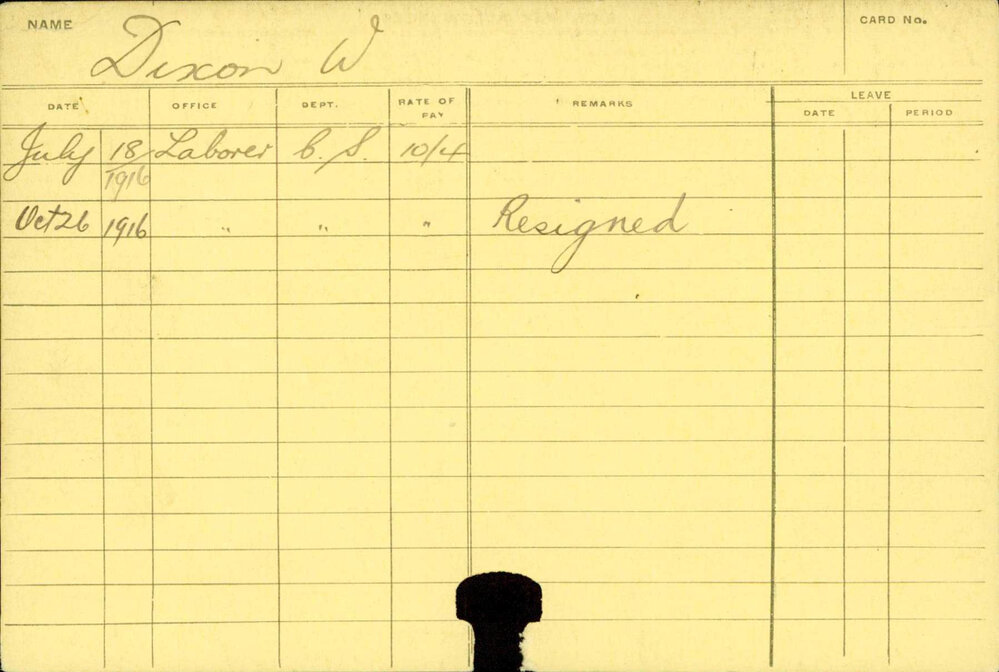 NAME Dixon W CARD No.
DATE OFFICE DEPT. RATE OF PAY REMARKS LEAVE
DATE PERIOD
July 18/1916 Laborer C. S. 10/4
Oct 26 1916 " " " Resigned